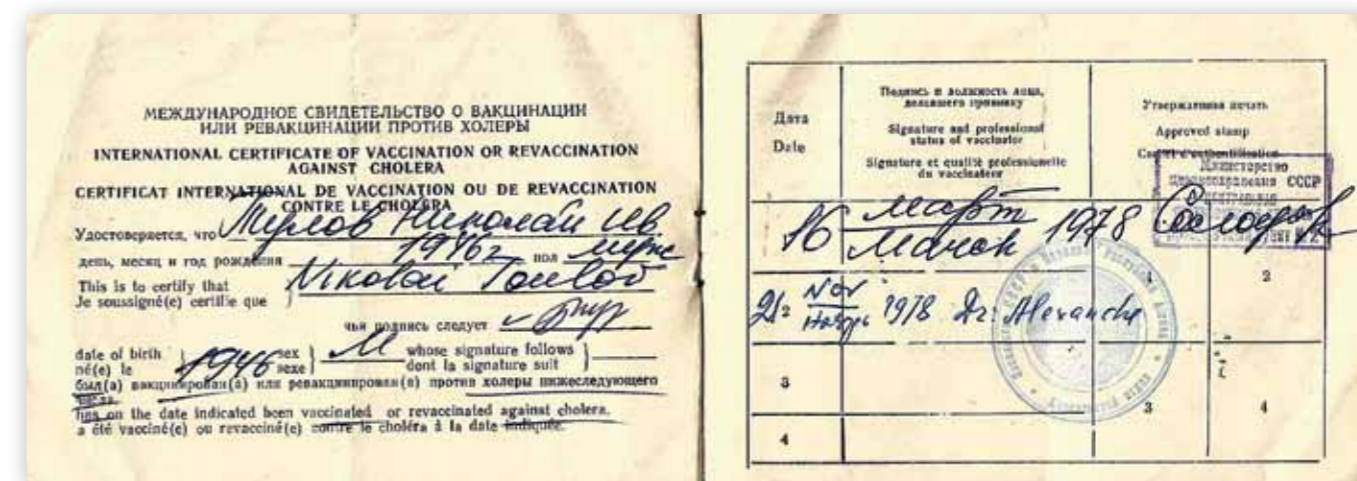 МЕЖДУНАРОДНОЕ СВИДЕТЕЛЬСТВО О ВАКЦИНАЦИИ
ИЛИ РЕВАКЦИНАЦИИ ПРОТИВ ХОЛЕРЫ
INTERNATIONAL CERTIFICATE OF VACCINATION OR REVACCINATION
AGAINST CHOLERA
CERTIFICAT INTERNATIONAL DE VACCINATION OU DE REVACCINATION
CONTRE LE CHOLERA
Удостоверяется, что Николай Ив
день, месяц и год рождения 1946г пол муж
This is to certify that Nikolai
Je soussigné(e) certifie que
чья подпись следует
date of birth 1946 sex M whose signature follows
né(e) le sexe dont la signature suit
был(а) вакцинирован(а) или ревакцинирован(а) против холеры нижеследующего
числа
has on the date indicated been vaccinated or revaccinated against cholera.
a été vacciné(e) ou revacciné(e) contre le choléra à la date indiquée.
Дата
Date
Подпись и должность лица,
делавшего прививку
Signature and professional
status of vaccinator
Signature et qualité professionelle
du vaccinateur
Утвержденная печать
Approved stamp
Cachet d'authentification
Министерство
здравоохранения СССР
16 март 1978
March
1 2
2 Nov 1978 Dr. Alexandre
Ноябрь
3
3 4
4